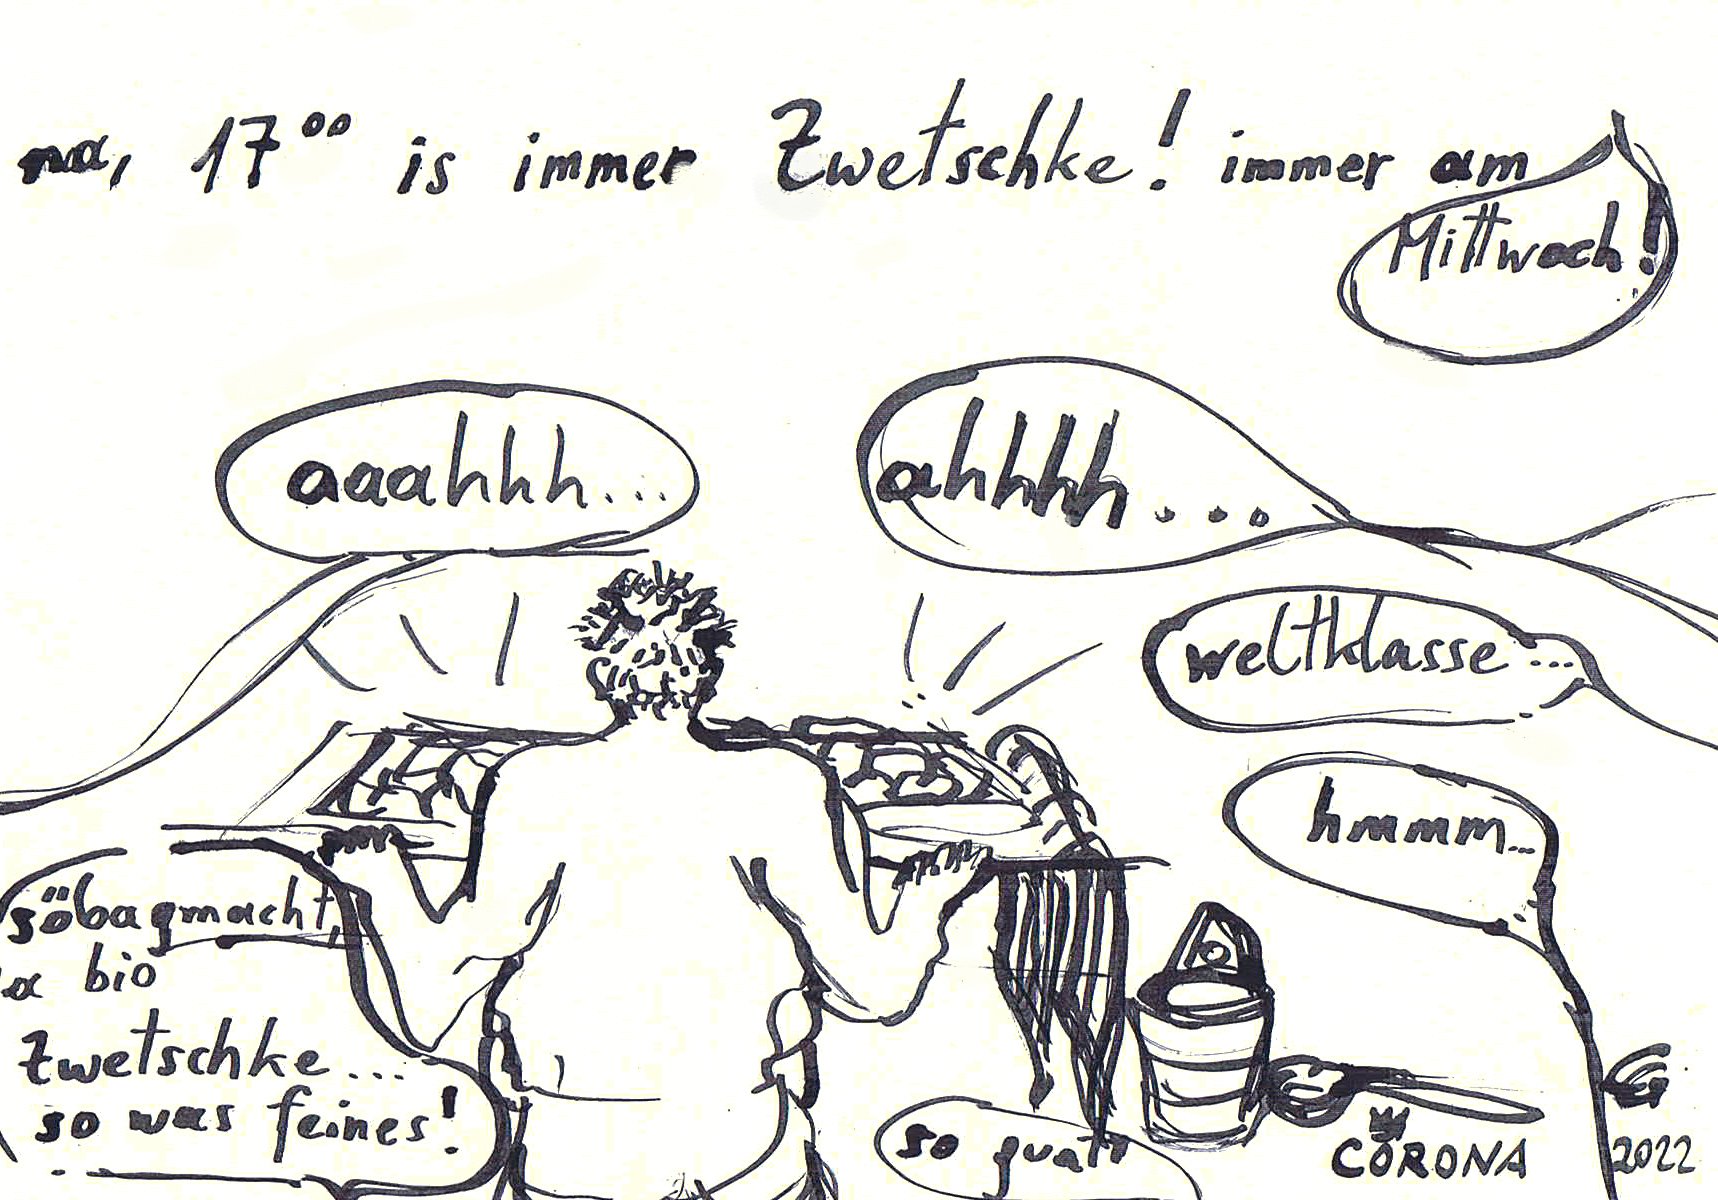 na, 17⁰⁰ is immer Zwetschke! immer am
Mittwoch!
aaahhh...
ahhhh...
weltklasse...
hmmm...
söbagmacht,
a bio
Zwetschke...
so was feines!
so guat
CORONA 2022